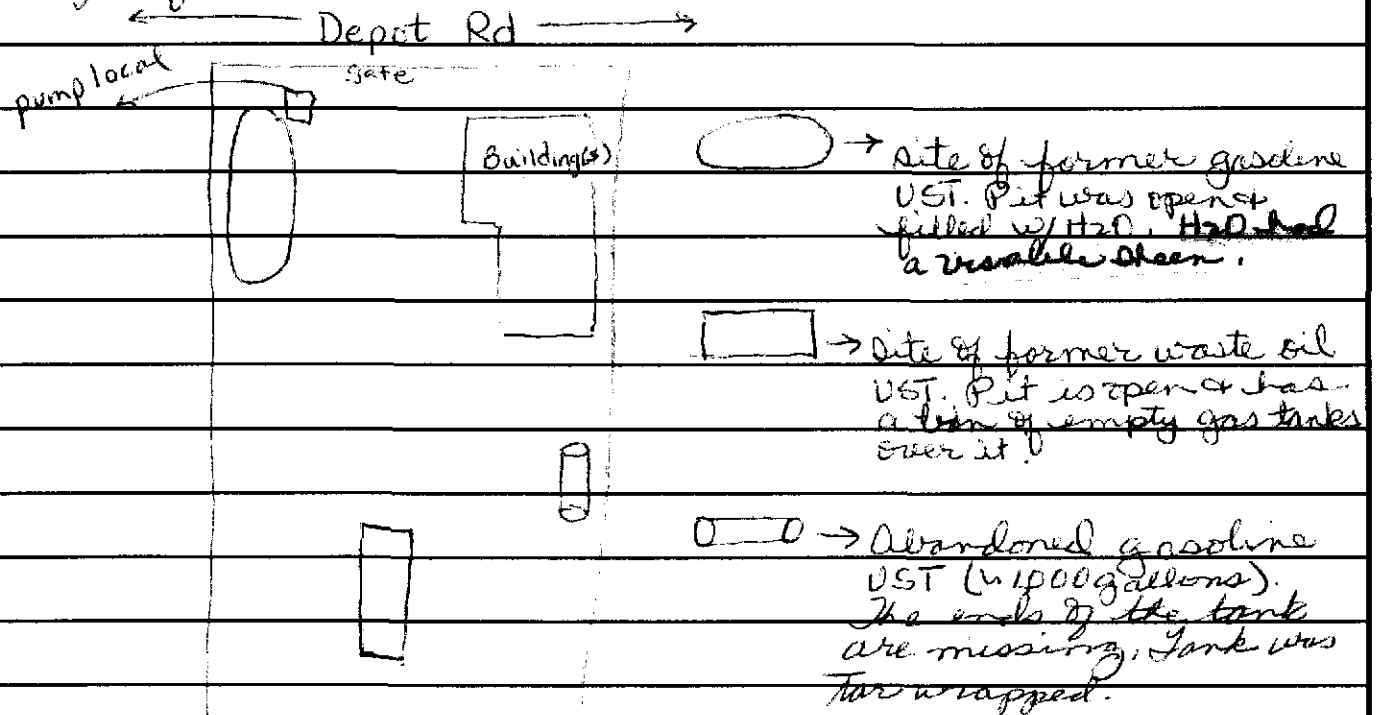 Depot Rd
gate
pump local
Building(s)
Site of former gasoline
UST. Pit was open &
filled w/ H2O. H2O had
a visable sheen.
Site of former waste oil
UST. Pit is open & has
a bin of empty gas tanks
over it.
Abandoned gasoline
UST (~ 1,000 gallons).
The ends of the tank
are missing. Tank was
Tar wrapped.